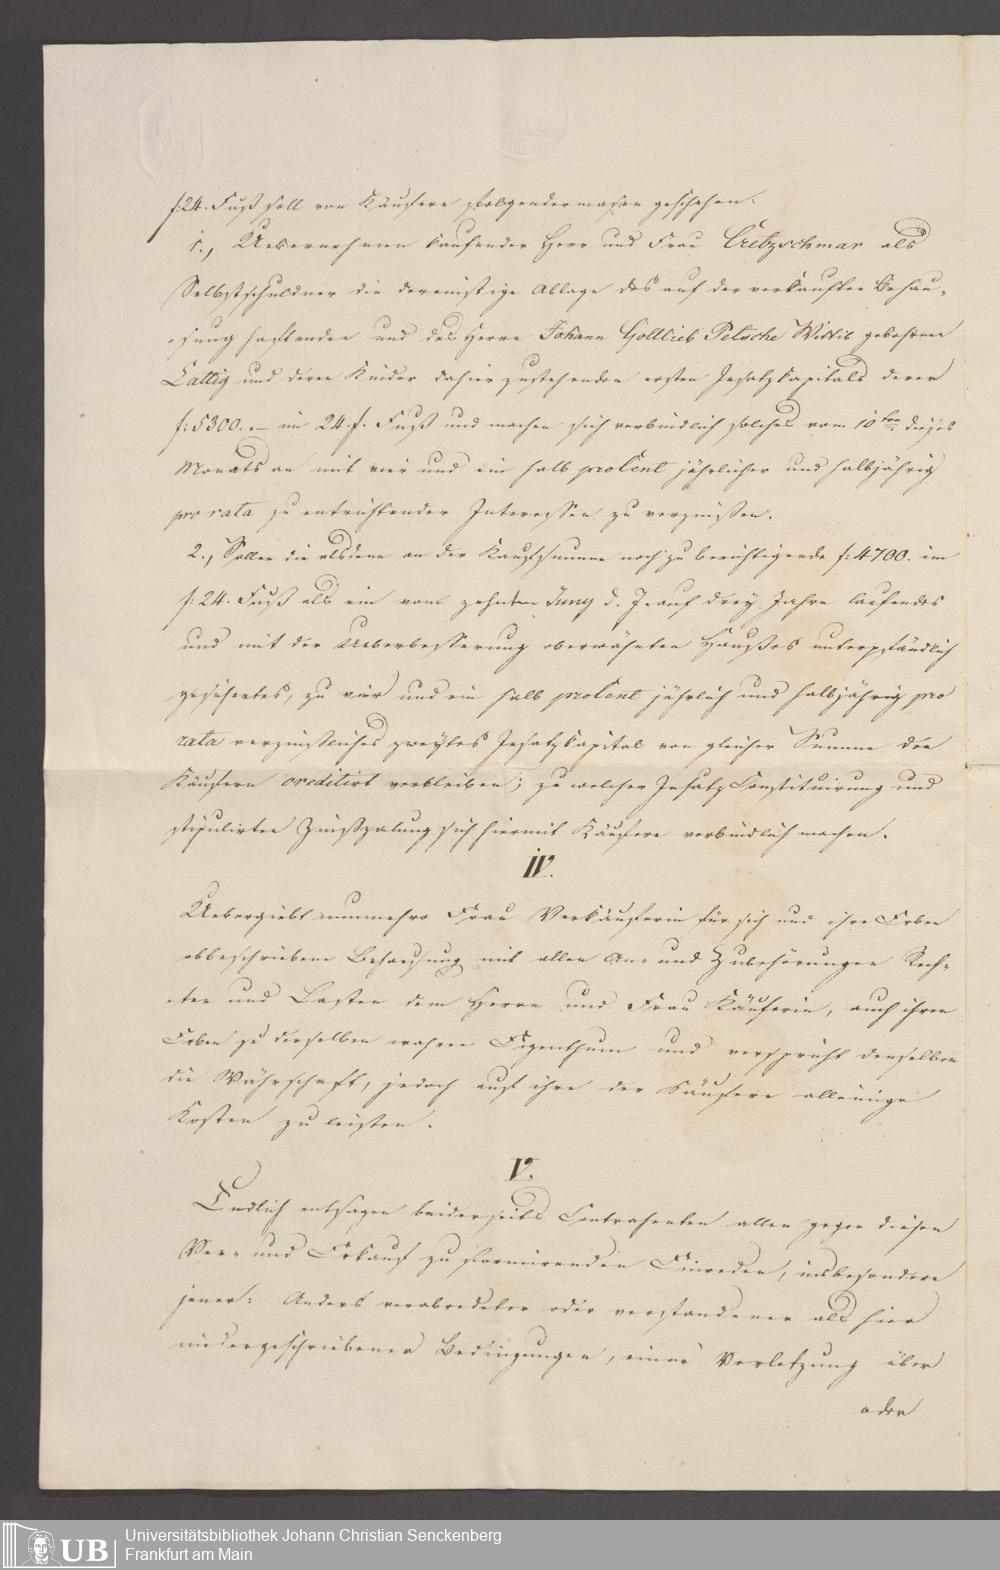 f. 24. Fuß soll von Käufern folgendermasen geschehen.
1., Uebernehmen kaufender Herr und Frau Cretzschmar als
Selbstschuldner die dereinstige Ablage des auf der verkauften Behau-
sung haftenden und des Herrn Johann Gottlieb Petsche Wittib gebohrnen
Lattig und deren Kinder dahier zustehenden ersten Insatzkapitals derer
f: 5300. – im 24. f. Fuß und machen sich verbindlich solches vom 10ten dieses
Monats an mit vier und ein halb proCent jährlicher und halbjährig
pro rata zu entrichtender Interessen zu verzinßen.
2., Sollen die alsdenn an der Kaufsumme noch zu berichtigende f: 4700. im
f: 24. Fuß als ein vom zehnten Juny d. J. auf drey Jahre laufendes
und mit der Ueberbesserung oberwähnten Haußes unterpfändlich
gesichertes, zu vier und ein halb proCent jährlich und halbjährig pro
rata verzinßliches zweytes Insatzkapital von gleicher Summe den
Käufern creditirt verbleiben; zu welcher Insatz Constituirung und
stipulirten Zinßzalung sich hiermit Käufere verbindlich machen.
IV.
Uebergiebt nunmehro Frau Verkäuferin für sich und ihre Erben
obbeschriebene Behausung mit allen An- und Zubehörungen Rech-
ten und Lasten dem Herrn und Frau Käuferin, auch ihren
Erben zu derselben wahren Eigenthum und verspricht denselben
die Währschaft, jedoch auf ihre der Käufere alleinige
Kosten zu leisten.
V.
Endlich entsagen beiderseits Contrahenten allen gegen diesen
Ver- und Erkauf zu formirenden Einreden, insbesondere
jener: Anders verabredeter oder verstandener als hier
niedergeschriebener Bedingungen, einer Verletzung über
oder
UB Universitätsbibliothek Johann Christian Senckenberg
Frankfurt am Main